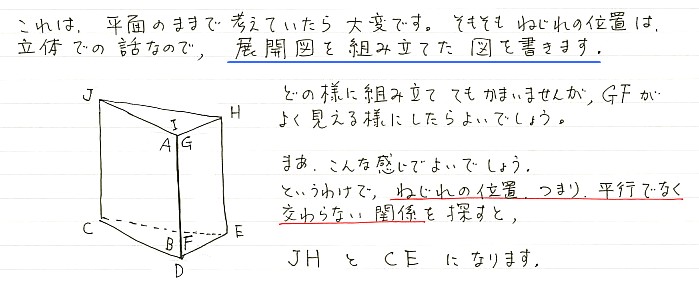 これは、平面のままで考えていたら大変です。そもそもねじれの位置は、
立体での話なので、展開図を組み立てた図を書きます。
どの様に組み立ててもかまいませんが、GFが
よく見える様にしたらよいでしょう。
まあ、こんな感じでよいでしょう。
というわけで、ねじれの位置、つまり、平行でなく
交わらない関係を探すと、
JHとCEになります。
J
H
I
A G
C
B F
E
D